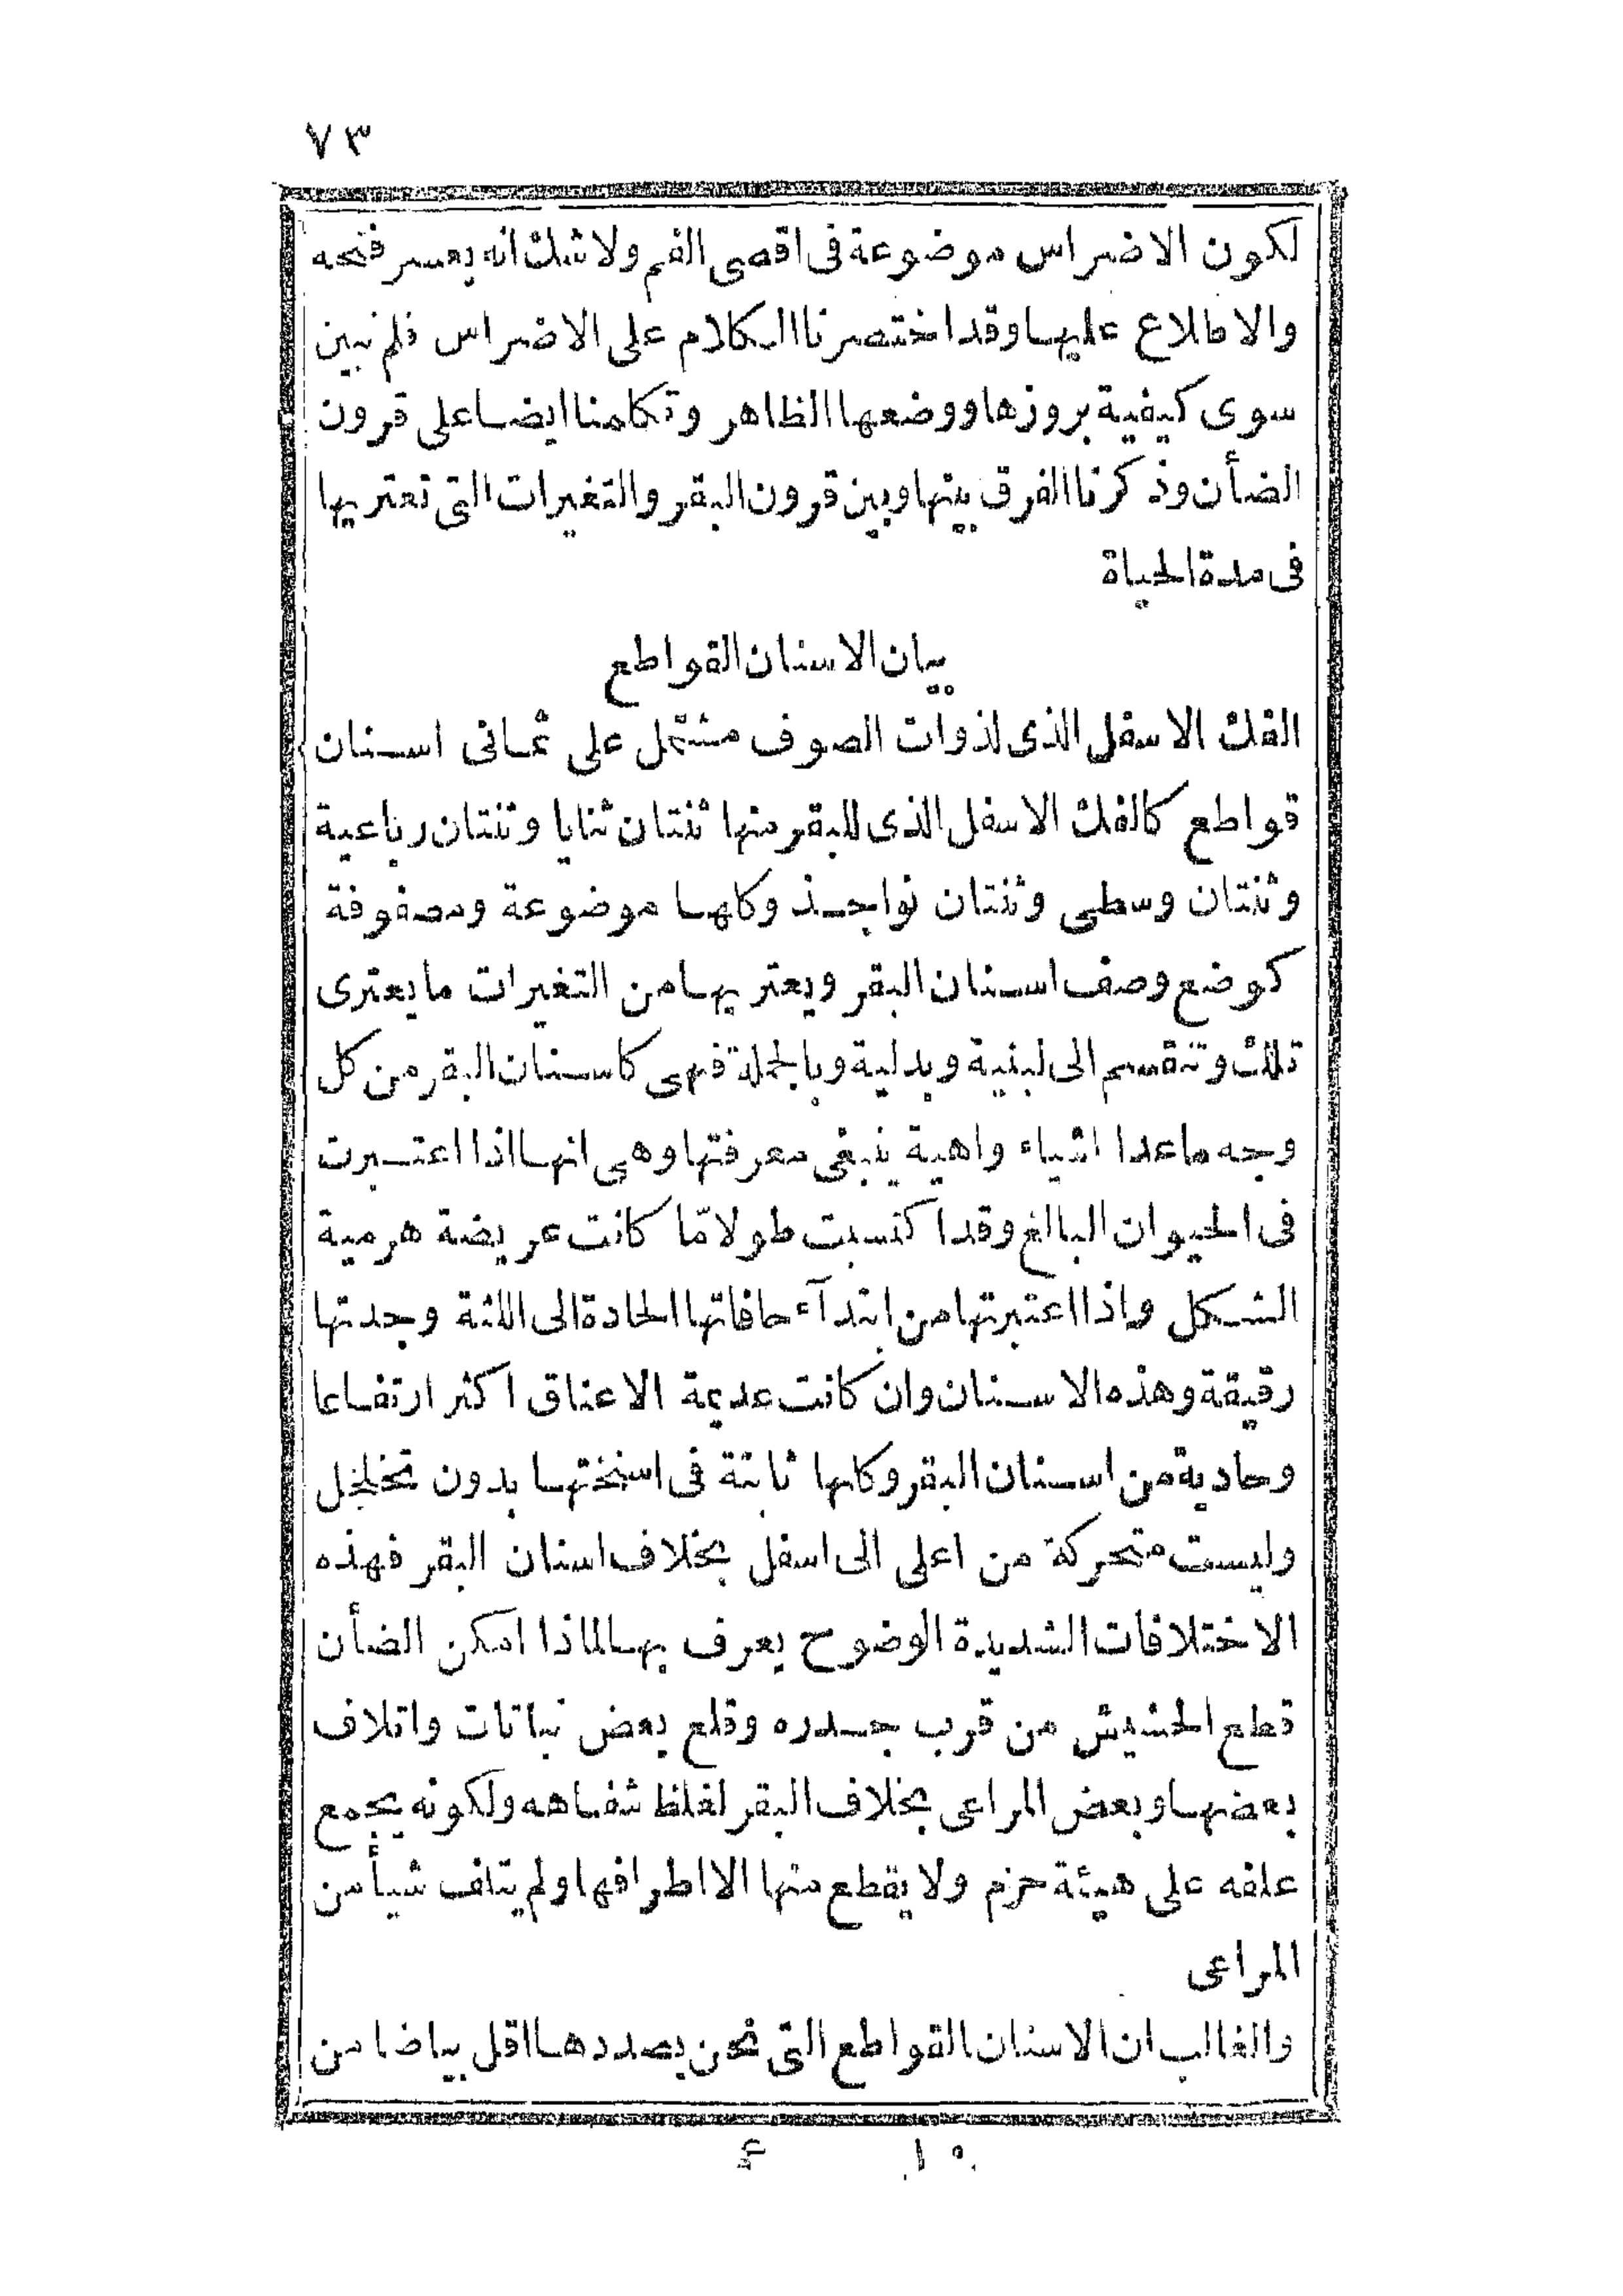 ٧٣
لكون الاضراس موضوعة فى اقصى الفم ولاشك انه يعسر فتحه
والاطلاع عليها وقد اختصرنا الكلام على الاضراس فلم نبين
سوى كيفية بروزها ووضعها الظاهر وتكلمنا ايضا على قرون
الضأن وذكرنا الفرق بينها وبين قرون البقر والتغيرات التى تعتريها
فى مدة الحياة
بيان الاسنان القواطع
الفك الاسفل الذى لذوات الصوف مشتمل على ثمانى اسنان
قواطع كالفك الاسفل الذى للبقر منها ثنتان ثنايا وثنتان رباعية
وثنتان وسطى وثنتان نواجذ وكلها موضوعة ومصفوفة
كوضع وصف اسنان البقر ويعتريها من التغيرات ما يعترى
تلك وتنقسم الى لبنية وبدلية وبالجملة فهى كاسنان البقر من كل
وجه ماعدا اشياء واهية ينبغى معرفتها وهى انها اذا اعتبرت
فى الحيوان البالغ وقد اكتسبت طولا مّا كانت عريضة هرمية
الشكل واذا اعتبرتها من ابتدآء حافاتها الحادة الى اللثة وجدتها
رقيقة وهذه الاسنان وان كانت عديمة الاعناق اكثر ارتفاعا
وحادية من اسنان البقر وكلها ثابتة فى اسنختها بدون تخلخل
وليست متحركة من اعلى الى اسفل بخلاف اسنان البقر فهذه
الاختلافات الشديدة الوضوح يعرف بها لماذا امكن الضأن
قطع الحشيش من قرب جدره وقلع بعض نباتات واتلاف
بعضها وبعض المراعى بخلاف البقر لغلظ شفاهه ولكونه يجمع
علفه على هيئة حزم ولا يقطع منها الا اطرافها ولم يتلف شيأ من
المراعى
والغالب ان الاسنان القواطع التى نحن بصددها اقل بياضا من
١٠